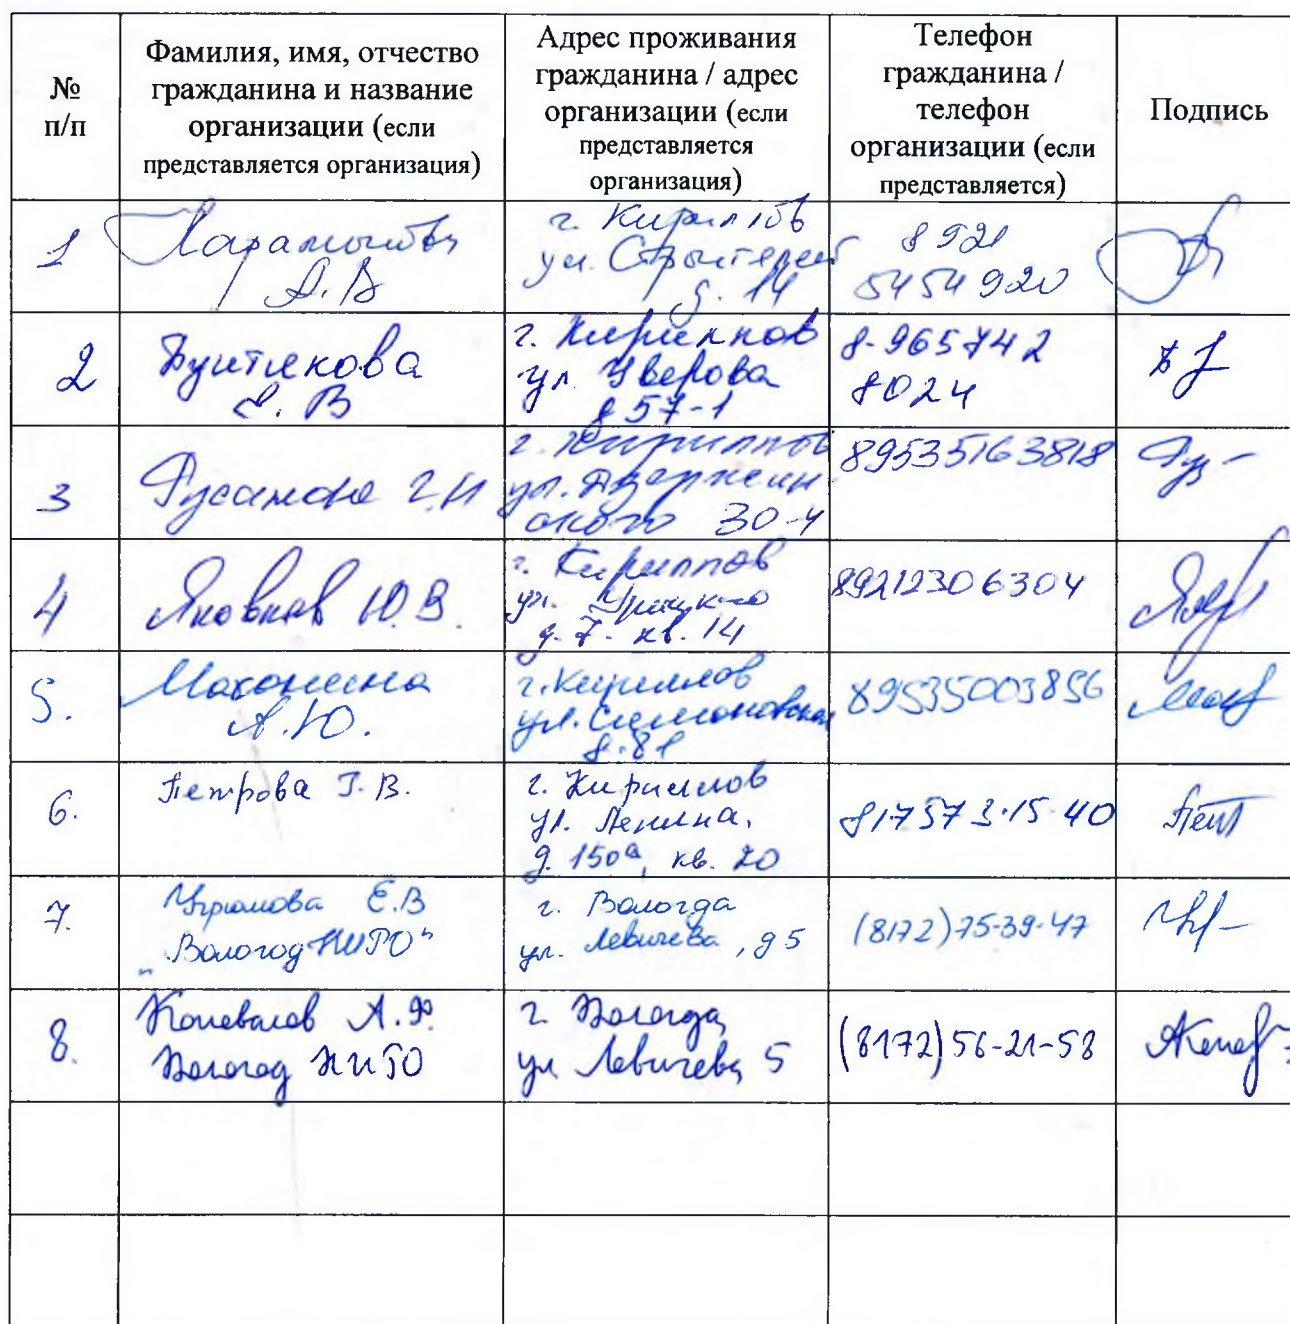 №
п/п
Фамилия, имя, отчество
гражданина и название
организации (если
представляется организация)
Адрес проживания
гражданина / адрес
организации (если
представляется
организация)
Телефон
гражданина /
телефон
организации (если
представляется)
Подпись
1
А.В
г. Кириллов
ул. Строителей
д. 14
8 921
5454920
2
Бунтякова
Е. В
г. Кириллов
ул. Уверова
д 57-1
8-965742
8024
3
Русанова Г.Н
г. Кириллов
ул. Дзержин-
ского 30-4
89535163818
4
Яковлев Ю.В.
г. Кириллов
ул. Урицкого
д. 7. кв. 14
89212306304
5.
А.Ю.
г. Кириллов
ул. Симоновская
д. 81
89535003856
6.
Петрова Т.В.
г. Кириллов
ул. Ленина,
д. 150а, кв. 20
817573-15-40
Пет
7.
Угрюмова Е.В
"ВологодНИТО"
г. Вологда
ул. Левичева, д 5
(8172)75-39-47
8.
Коновалов А.Ф.
Вологод НИТО
г Вологда,
ул Левичева, 5
(8172)56-21-58